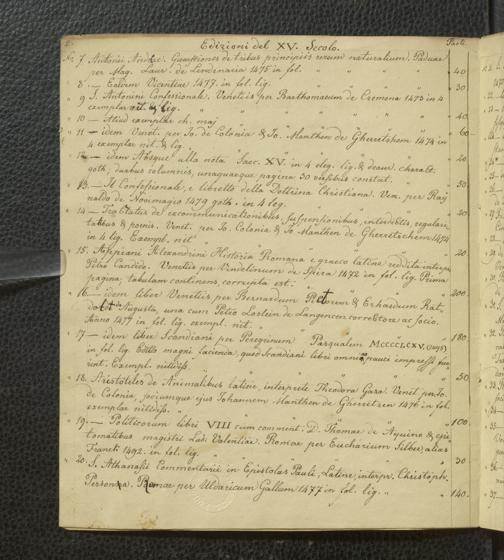 2. Edizioni del XV. Secolo. Paoli
N. 7. Antonii Andree. Quaestiones de tribus principiis rerum naturalium. Paduae
per Mag. Laur. de Lendenaria 1475 in fol. 40
8 — Eaedem Vicentiae 1477. in fol. lig. 30
9 S. Antonini Confessionale. Venetiis per Barthomaeum de Cremona 1473 in 4
exemplar nit. & lig.
10 — Aliud exemplar ch. maj. 40
11 — idem Venet. per Jo. de Colonia & Jo. Manthen de Gherretshem 1474 in
4 exemplar nit. & lig. 60
12 — idem Absque ulla nota Saec. XV. in 4 eleg. lig. & deaur. charact.
goth. duabus columnis, unaquaeque pagina 30 versibus constat. 20
13. — Il Confessionale, e libretto della Dottrina Christiana. Ven. per Ray
naldo de Novimagio 1479 goth. in 4 leg. 50
14 — Tractatus de excommunicationibus, suspensionibus, interdictis, regulari
tatibus & poenis. Venet. per Jo. Colonia & Jo Manthen de Gherretschem 1474
in 4 lig. Exempl. nit. 20
15. Appiani Alexandrini Historia Romana e graeco latine reddita interpr.
Petro Candido. Venetiis per Vindelinum de Spira 1472 in fol. lig. Prima
pagina, tabulam continens, corrupta est. 20
16 — idem liber Venetiis per Bernardum Pictorem & Erhardum Rat,
dolt de Augusta, una cum Petro Loslein de Langencen correctore ac socio.
Anno 1477 in fol. lig. exempl. nit. 200
17 — idem liber Scandiani per Peregrinum Pasqualem MCCCCLXXXXV (1495)
in fol. lig. Editio magni facienda, quod Scandiani libri omnino pauci impressi fue
rint. Exempl. nitidiss. 180
18. Aristoteles de Animalibus latine, interprete Theodoro Gaza. Venet. per Jo.
de Colonia, sociumque ejus Johannem Manthen de Gherretzen 1476 in fol.
exemplar nitidiss. 50
19. — Politicorum libri VIII cum comment. D. Thomae de Aquino & epi
tomatibus magistri Lud. Valentiae. Romae per Eucharium Silber, alias
Franck 1492. in fol. lig. 100
20. S. Athanasii Commentarii in Epistolas Pauli, Latine, interpr. Christoph.
Persona. Romae per Udaricum Gallum 1477 in fol. lig. 140.